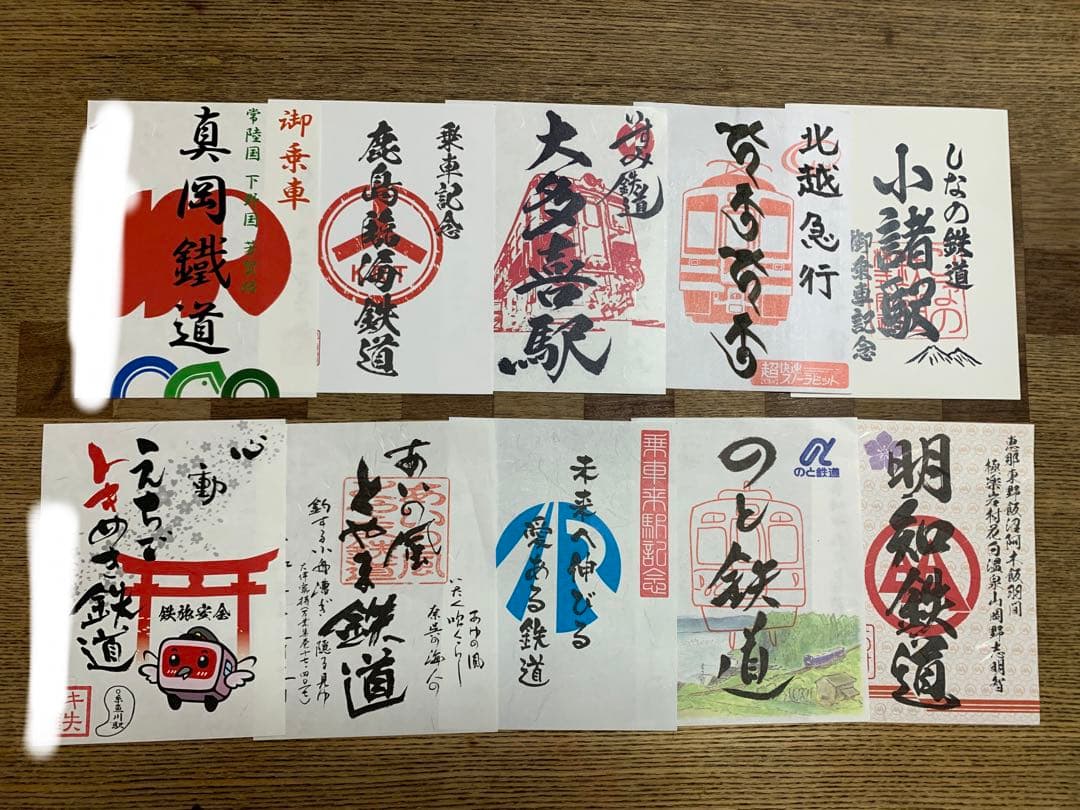 御乗車
常陸国 下野国
真岡鐵道
乗車記念
鹿島臨海鉄道
いすみ鉄道
大多喜駅
北越急行
超快速
スノーラビット
しなの鉄道
小諸駅
御乗車記念
心動
えちご
トキめき鉄道
鉄旅安全
糸魚川駅
あいの風
とやま鉄道
あゆの風
いたく吹くらし
奈呉の海人の
釣する小舟漕ぎ隠る見ゆ
乗車来駅記念
未来へ伸びる
愛ある鉄道
のと鉄道
のと鉄道
恵那東野飯沼阿木飯羽間
極楽岩村花白温泉山岡野志明智
明知鉄道